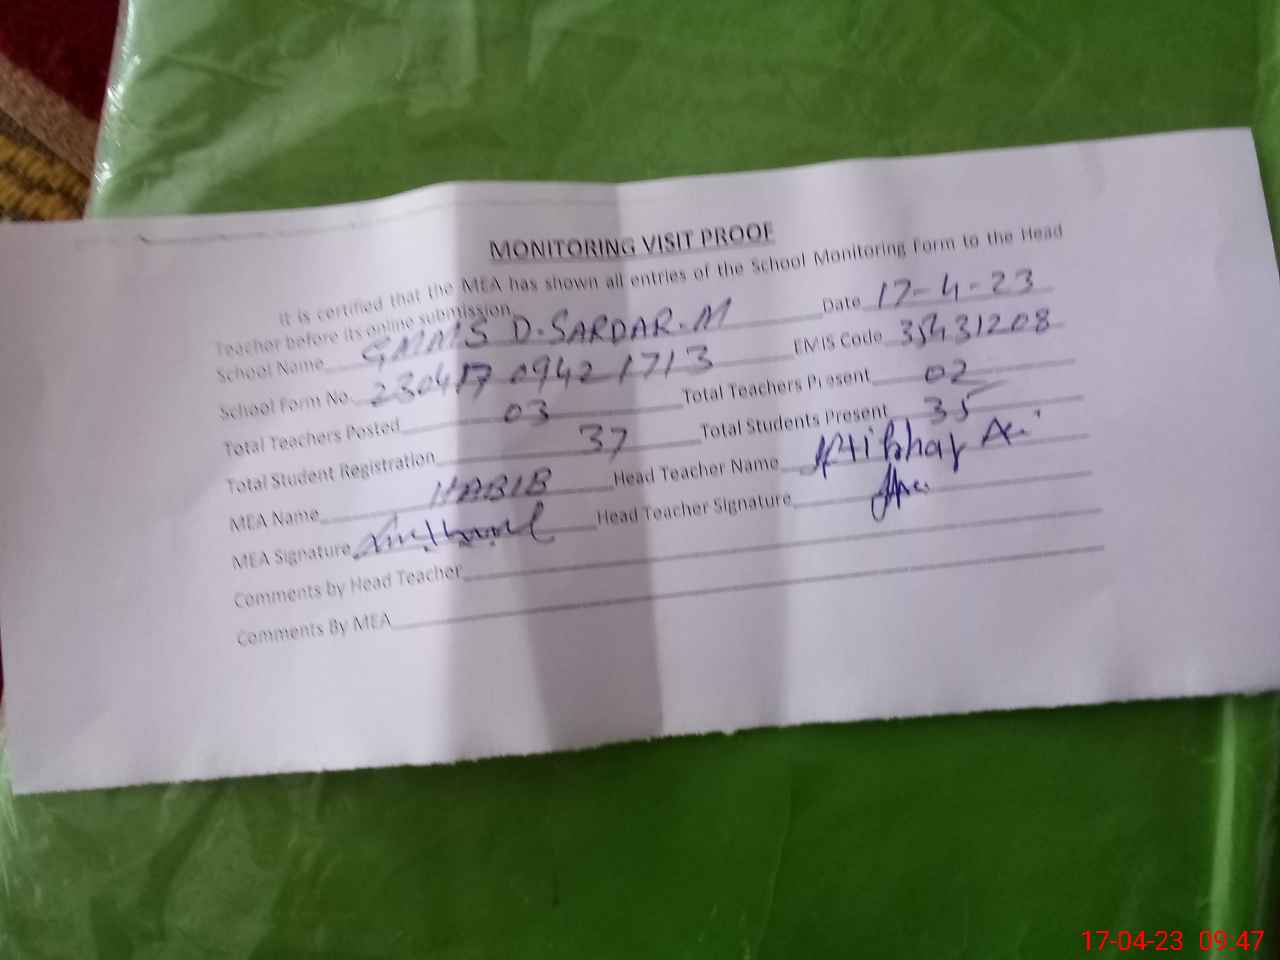 MONITORING VISIT PROOF
It is certified that the MEA has shown all entries of the School Monitoring Form to the Head
Teacher before its online submission.
School Name GMMS D.SARDAR.M Date 17-4-23
School Form No. 230417 0942 1713 EMIS Code 35431208
Total Teachers Posted 03 Total Teachers Present 02
Total Student Registration 37 Total Students Present 35
MEA Name HABIB Head Teacher Name
MEA Signature Head Teacher Signature
Comments by Head Teacher
Comments By MEA
17-04-23 09:47